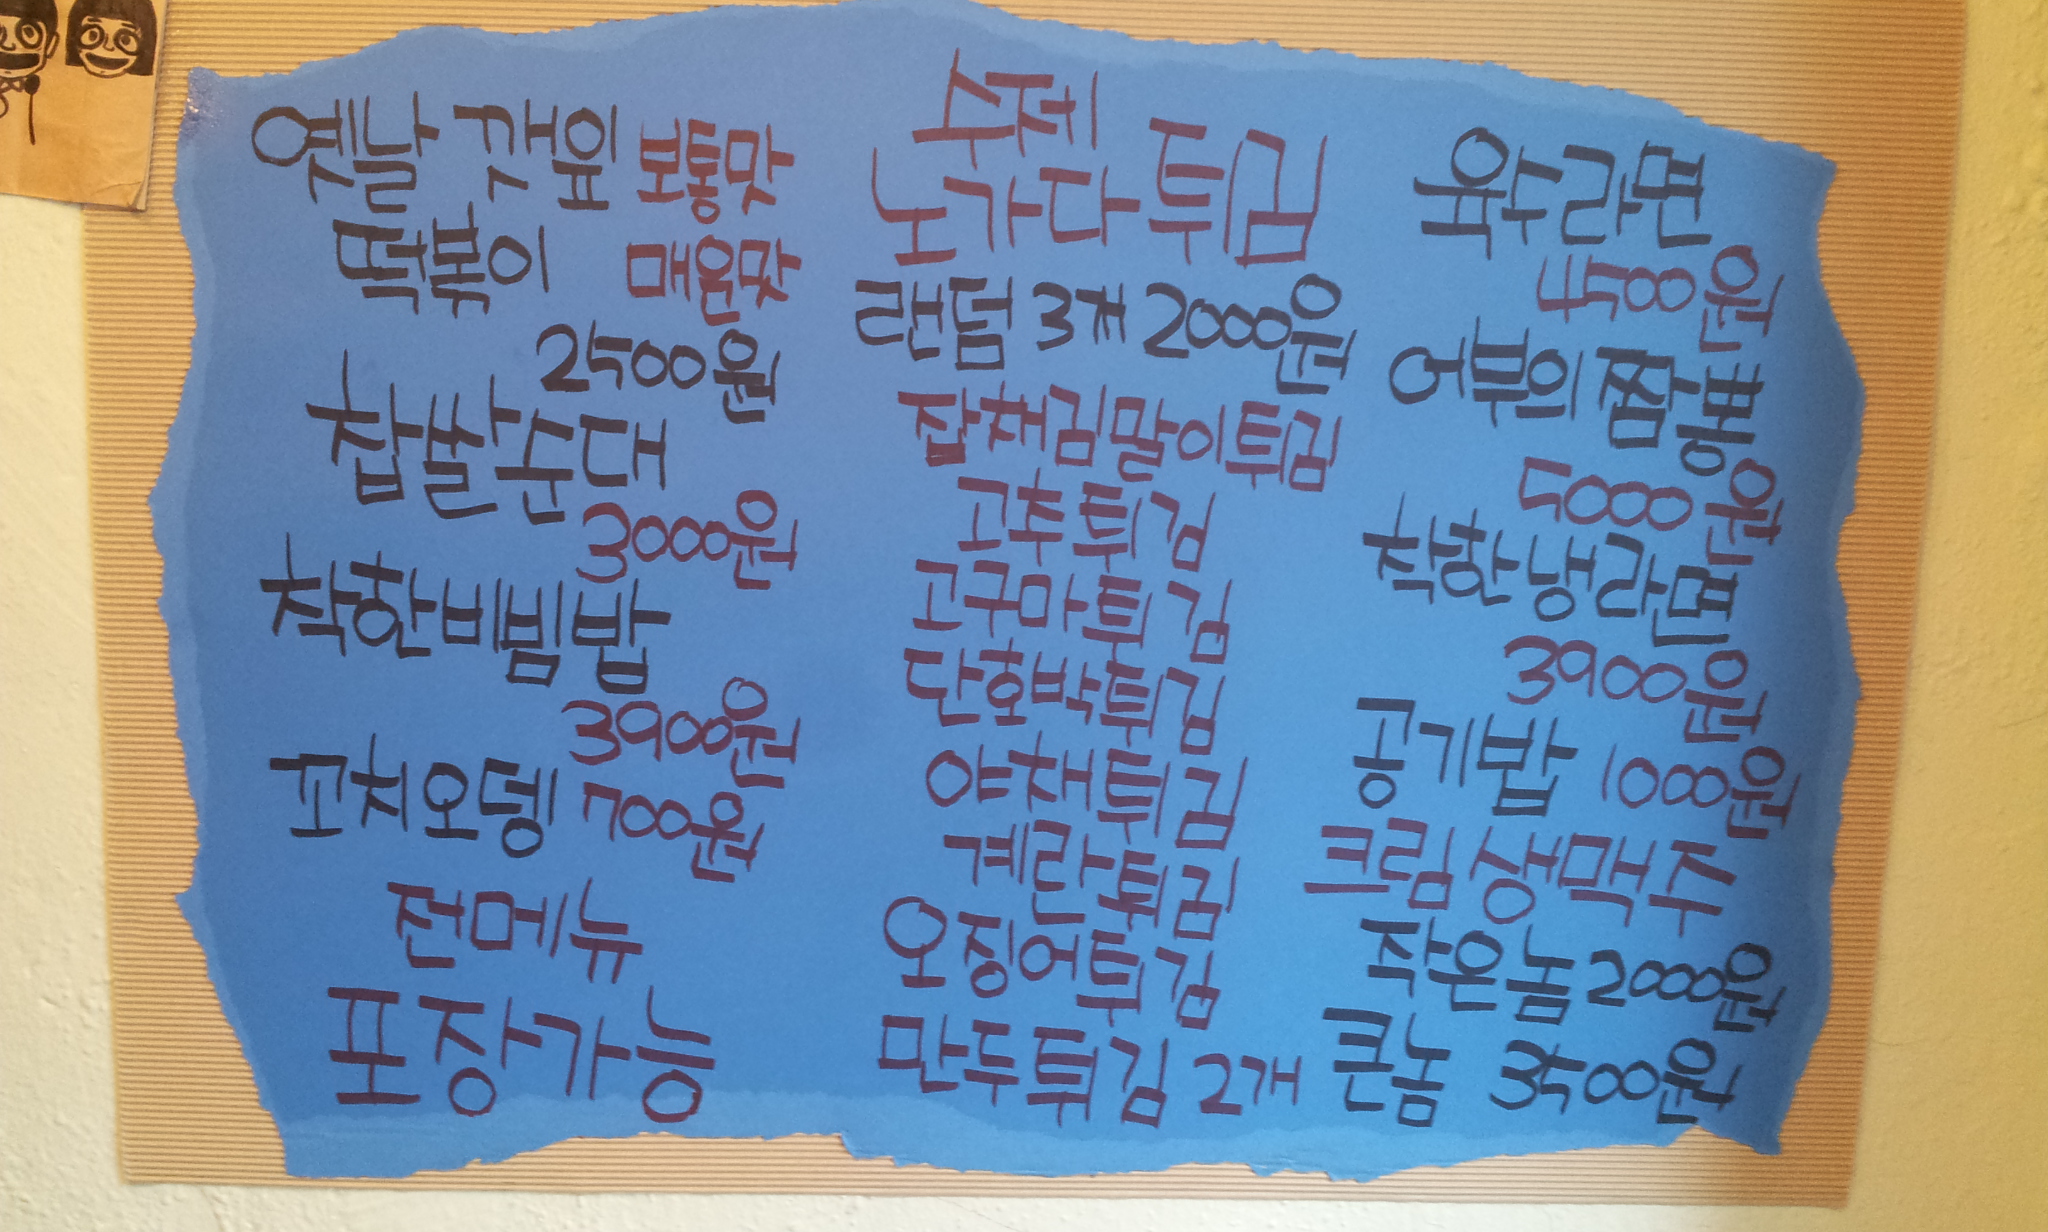 옛날 보통맛
떡볶이 매운맛
2500원
찹쌀순대
3000원
착한비빔밥
3900원
꼬치오뎅 700원
전메뉴
포장가능
노가다튀김
랜덤 3개 2000원
잡채김말이튀김
고추튀김
고구마튀김
단호박튀김
야채튀김
계란튀김
오징어튀김
만두튀김 2개
육수라면
4500원
어부의 짬뽕
5000원
착한냉라면
3900원
공기밥 1000원
크림생맥주
작은놈 2000원
큰놈 3500원